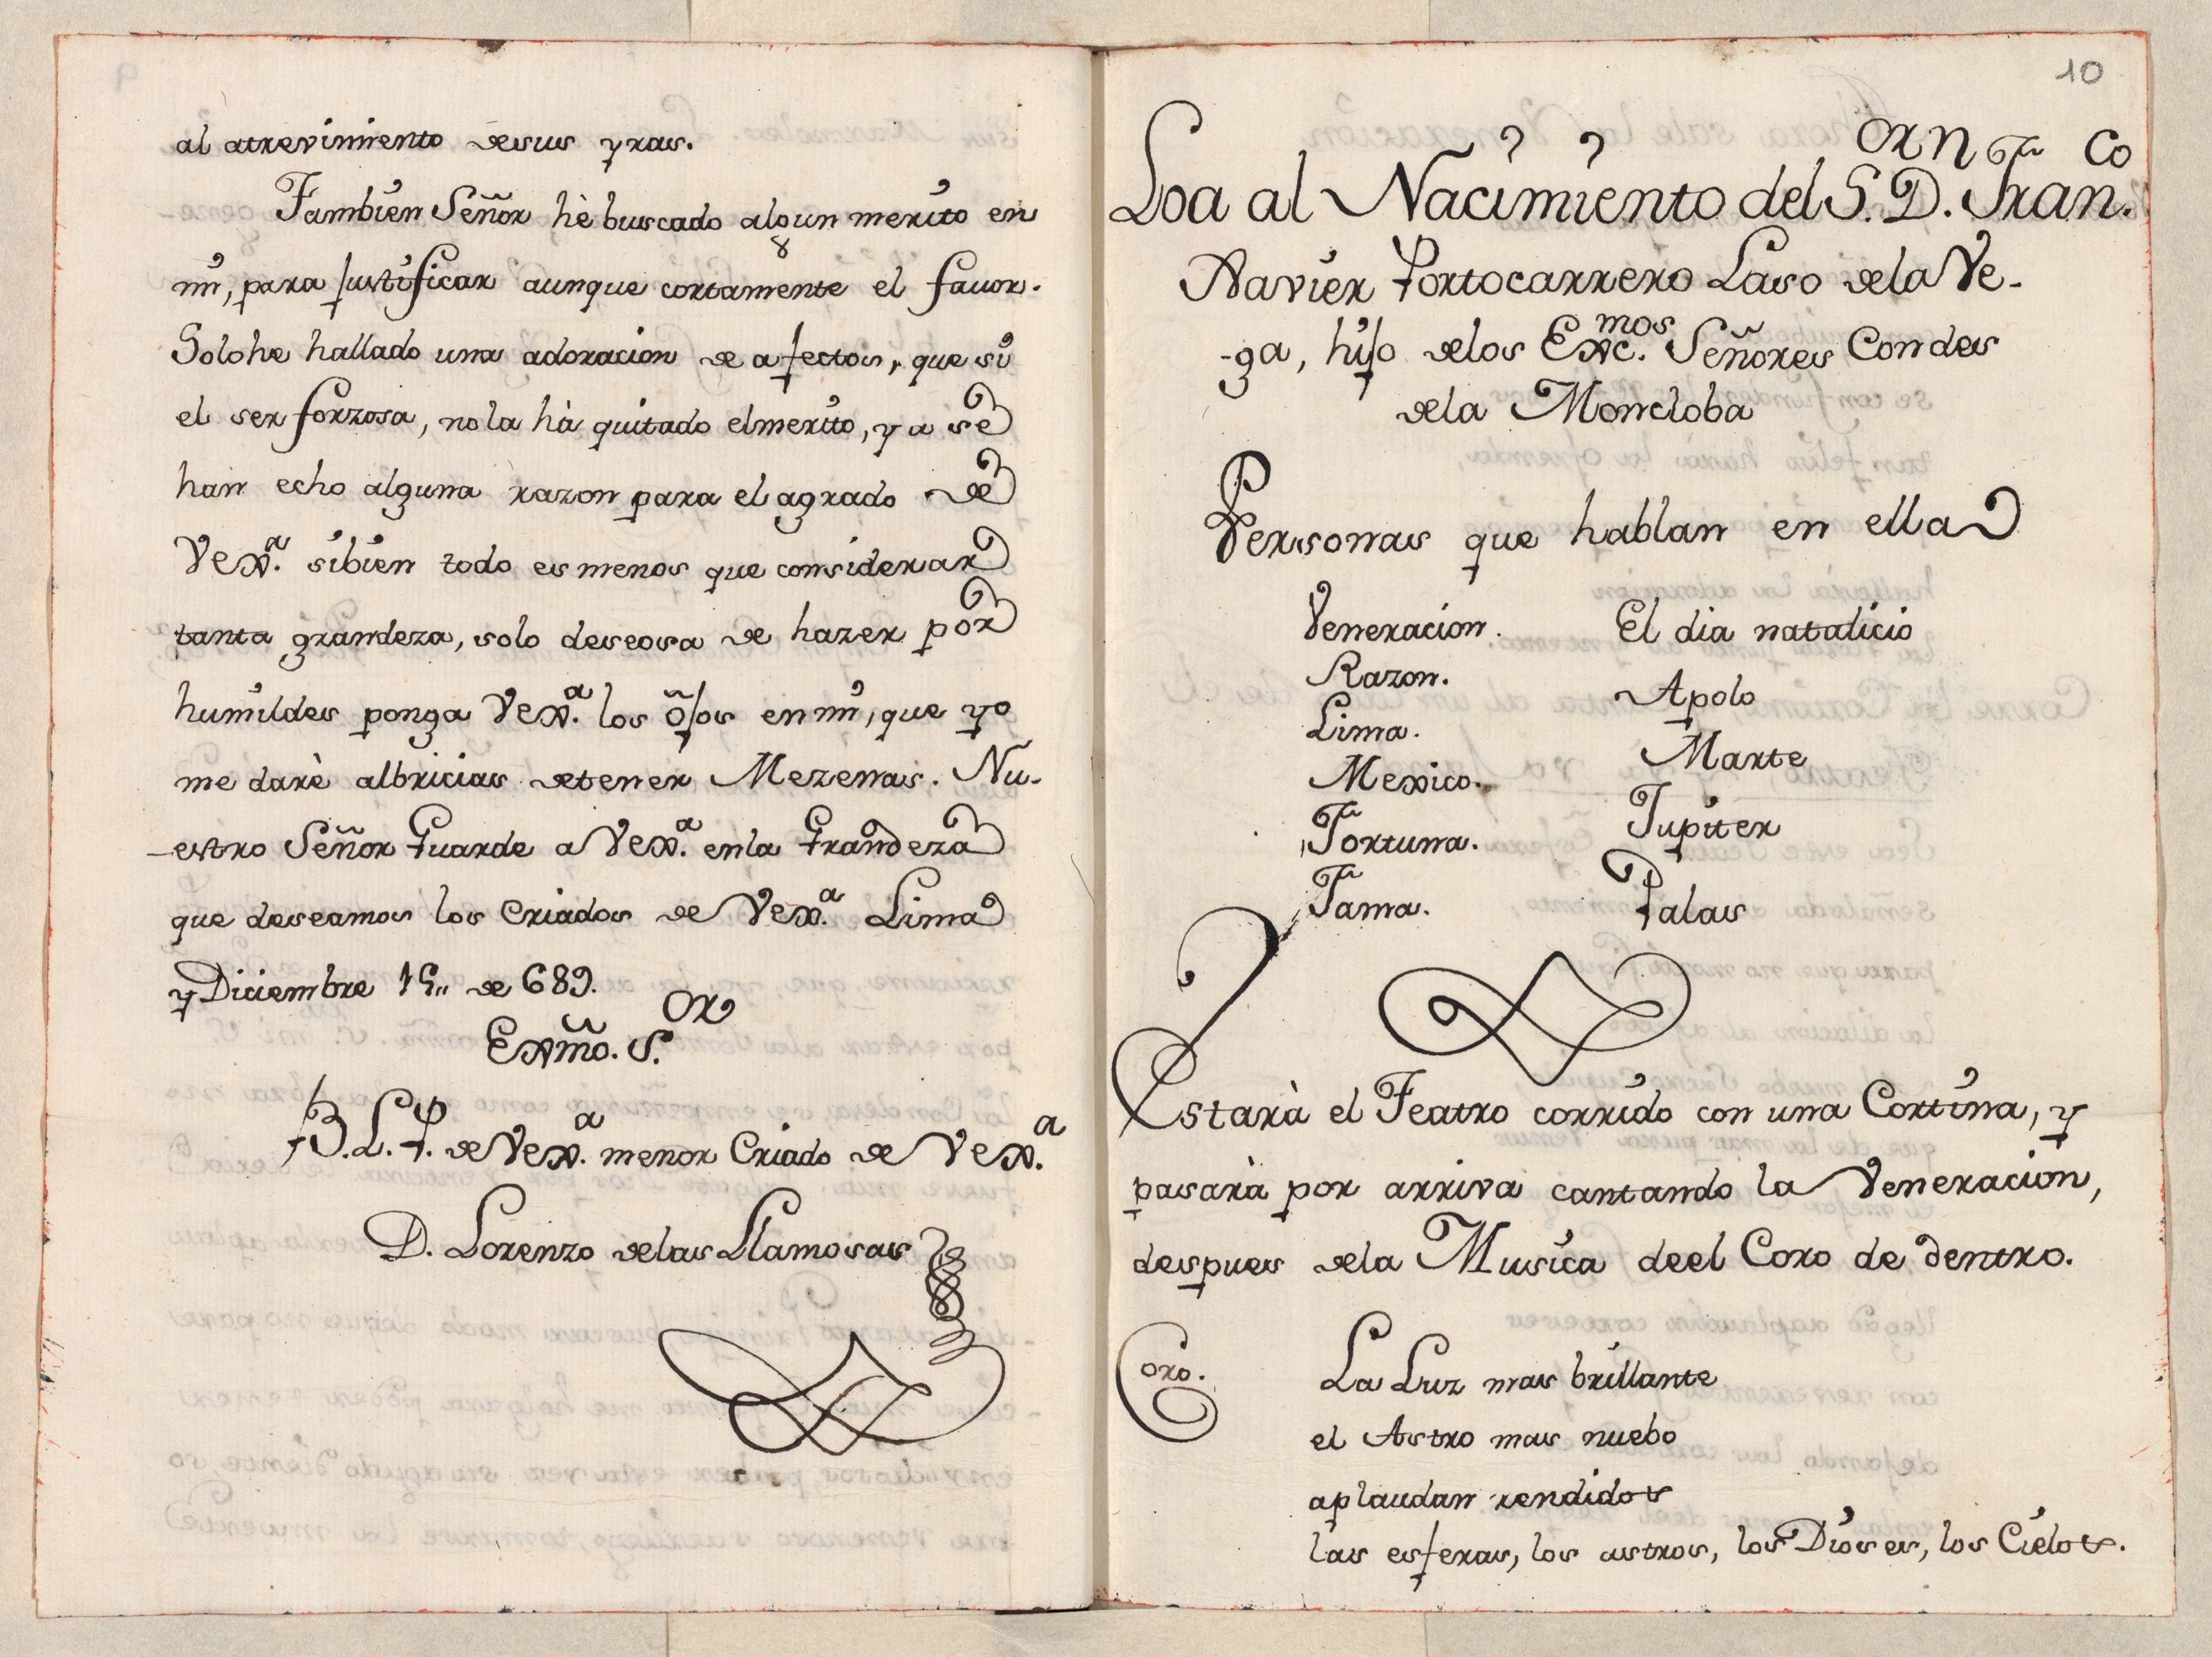 al atrevimiento desus yras.
Tambien Señor hè buscado algun merito en
mi, para justificar aunque cortamente el fauor.
Solo he hallado una adoracion de afectos, que si
el ser forzosa, no la hà quitado el merito, ya se
han echo alguna razon para el agrado de
Vexª. sibien todo es menos que considerar
tanta grandeza, solo deseosa de hazer por
humildes ponga Vexª. los ojos en mi, que yo
me darè albricias detener Mezenas. Nu-
-estro Señor Guarde a Vexª. enla Grandeza
que deseamos los Criados de Vexª. Lima
y Diciembre 15,, de 689.
Exmõ. S.ᵒʳ
B. L. P. de Vexª. menor Criado de Vexª.
D. Lorenzo delas Llamosas
10
Loa al Nacimiento del S.ᵒʳ D.ⁿ Fran.ᶜᵒ
Xavier Portocarrero Laso dela Ve-
-ga, hijo delos Exc.ᵐᵒˢ Señores Condes
dela Moncloba
Personas que hablan en ella
Veneracion. El dia natalicio
Razon. Apolo
Lima. Marte
Mexico. Jupiter
Fortuna. Palas
Fama.
Estarà el Teatro corrido con una Cortina, y
pasarà por arriva cantando la Veneracion,
despues dela Musica deel Coro de dentro.
Coro. La Luz mas brillante
el Astro mas nuebo
aplaudan rendidos
las esferas, los astros, los Dioses, los Cielos.